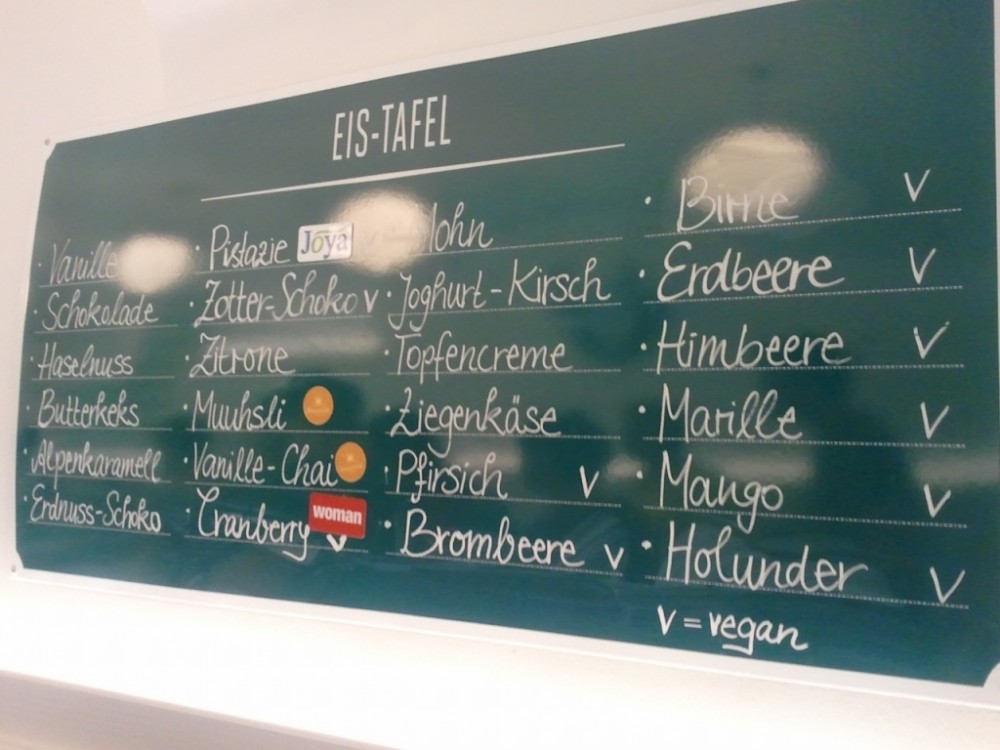 EIS-TAFEL
· Vanille
· Schokolade
· Haselnuss
· Butterkeks
· Alpenkaramell
· Erdnuss-Schoko
· Pistazie Joya v
· Zotter-Schoko v
· Zitrone
· Muuhsli
· Vanille-Chai
· Cranberry woman v
· Joghurt-Kirsch
· Topfencreme
· Ziegenkäse
· Pfirsich v
· Brombeere v
· Birne v
· Erdbeere v
· Himbeere v
· Marille v
· Mango v
· Holunder v
v = vegan